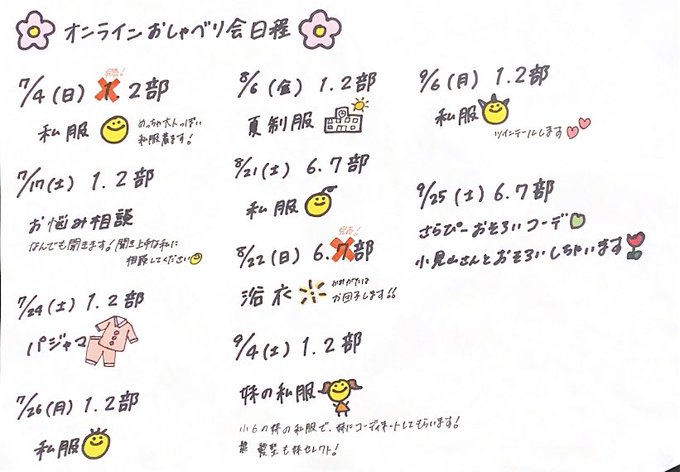 オンラインおしゃべり会日程
7/4(日) 1.2部
私服
めっちゃ大人っぽい
私服着ます!
7/17(土) 1.2部
お悩み相談
なんでも聞きます!聞き上手な私に
相談してください
7/24(土) 1.2部
パジャマ
7/26(月) 1.2部
私服
8/6(金) 1.2部
夏制服
8/21(土) 6.7部
私服
8/22(日) 6.7部
浴衣
かみがたは
お団子します!!
9/4(土) 1.2部
妹の私服
小6の妹の私服で、妹にコーディネートしてもらいます!
髪型も妹セレクト!
9/6(月) 1.2部
私服
ツインテールします
9/25(土) 6.7部
さらぴーおそろいコーデ
小見山さんとおそろいしちゃいます